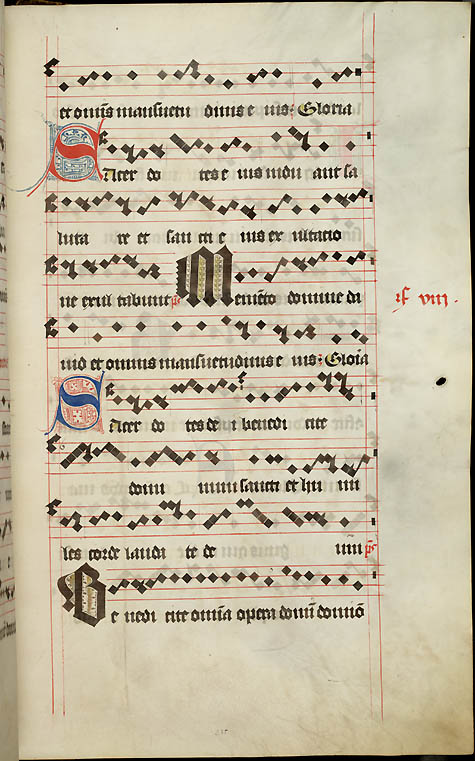 et omīs mansuetu dinis e ius: Gloria
Sacer do tes e ius indu ant sa
luta re et san cti e ius ex ultacio
ne exul tabunt ps Memēto domine da
uid et omnis mansuetudinis e ius: Gloia
rf viii.
Sacer do tes de i benedi cite
domi num sancti et hu mi
les corde lauda te de um ps
Be nedi cite omīa opera domī domīo